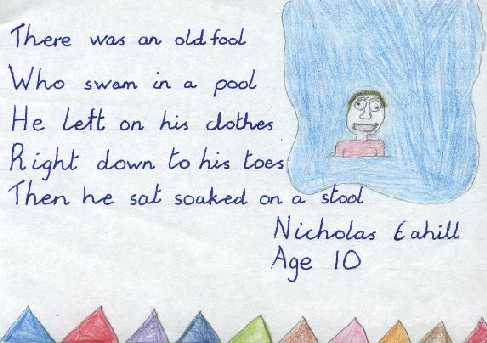 There was an old fool
Who swam in a pool
He left on his clothes
Right down to his toes
Then he sat soaked on a stool
Nicholas Cahill
Age 10